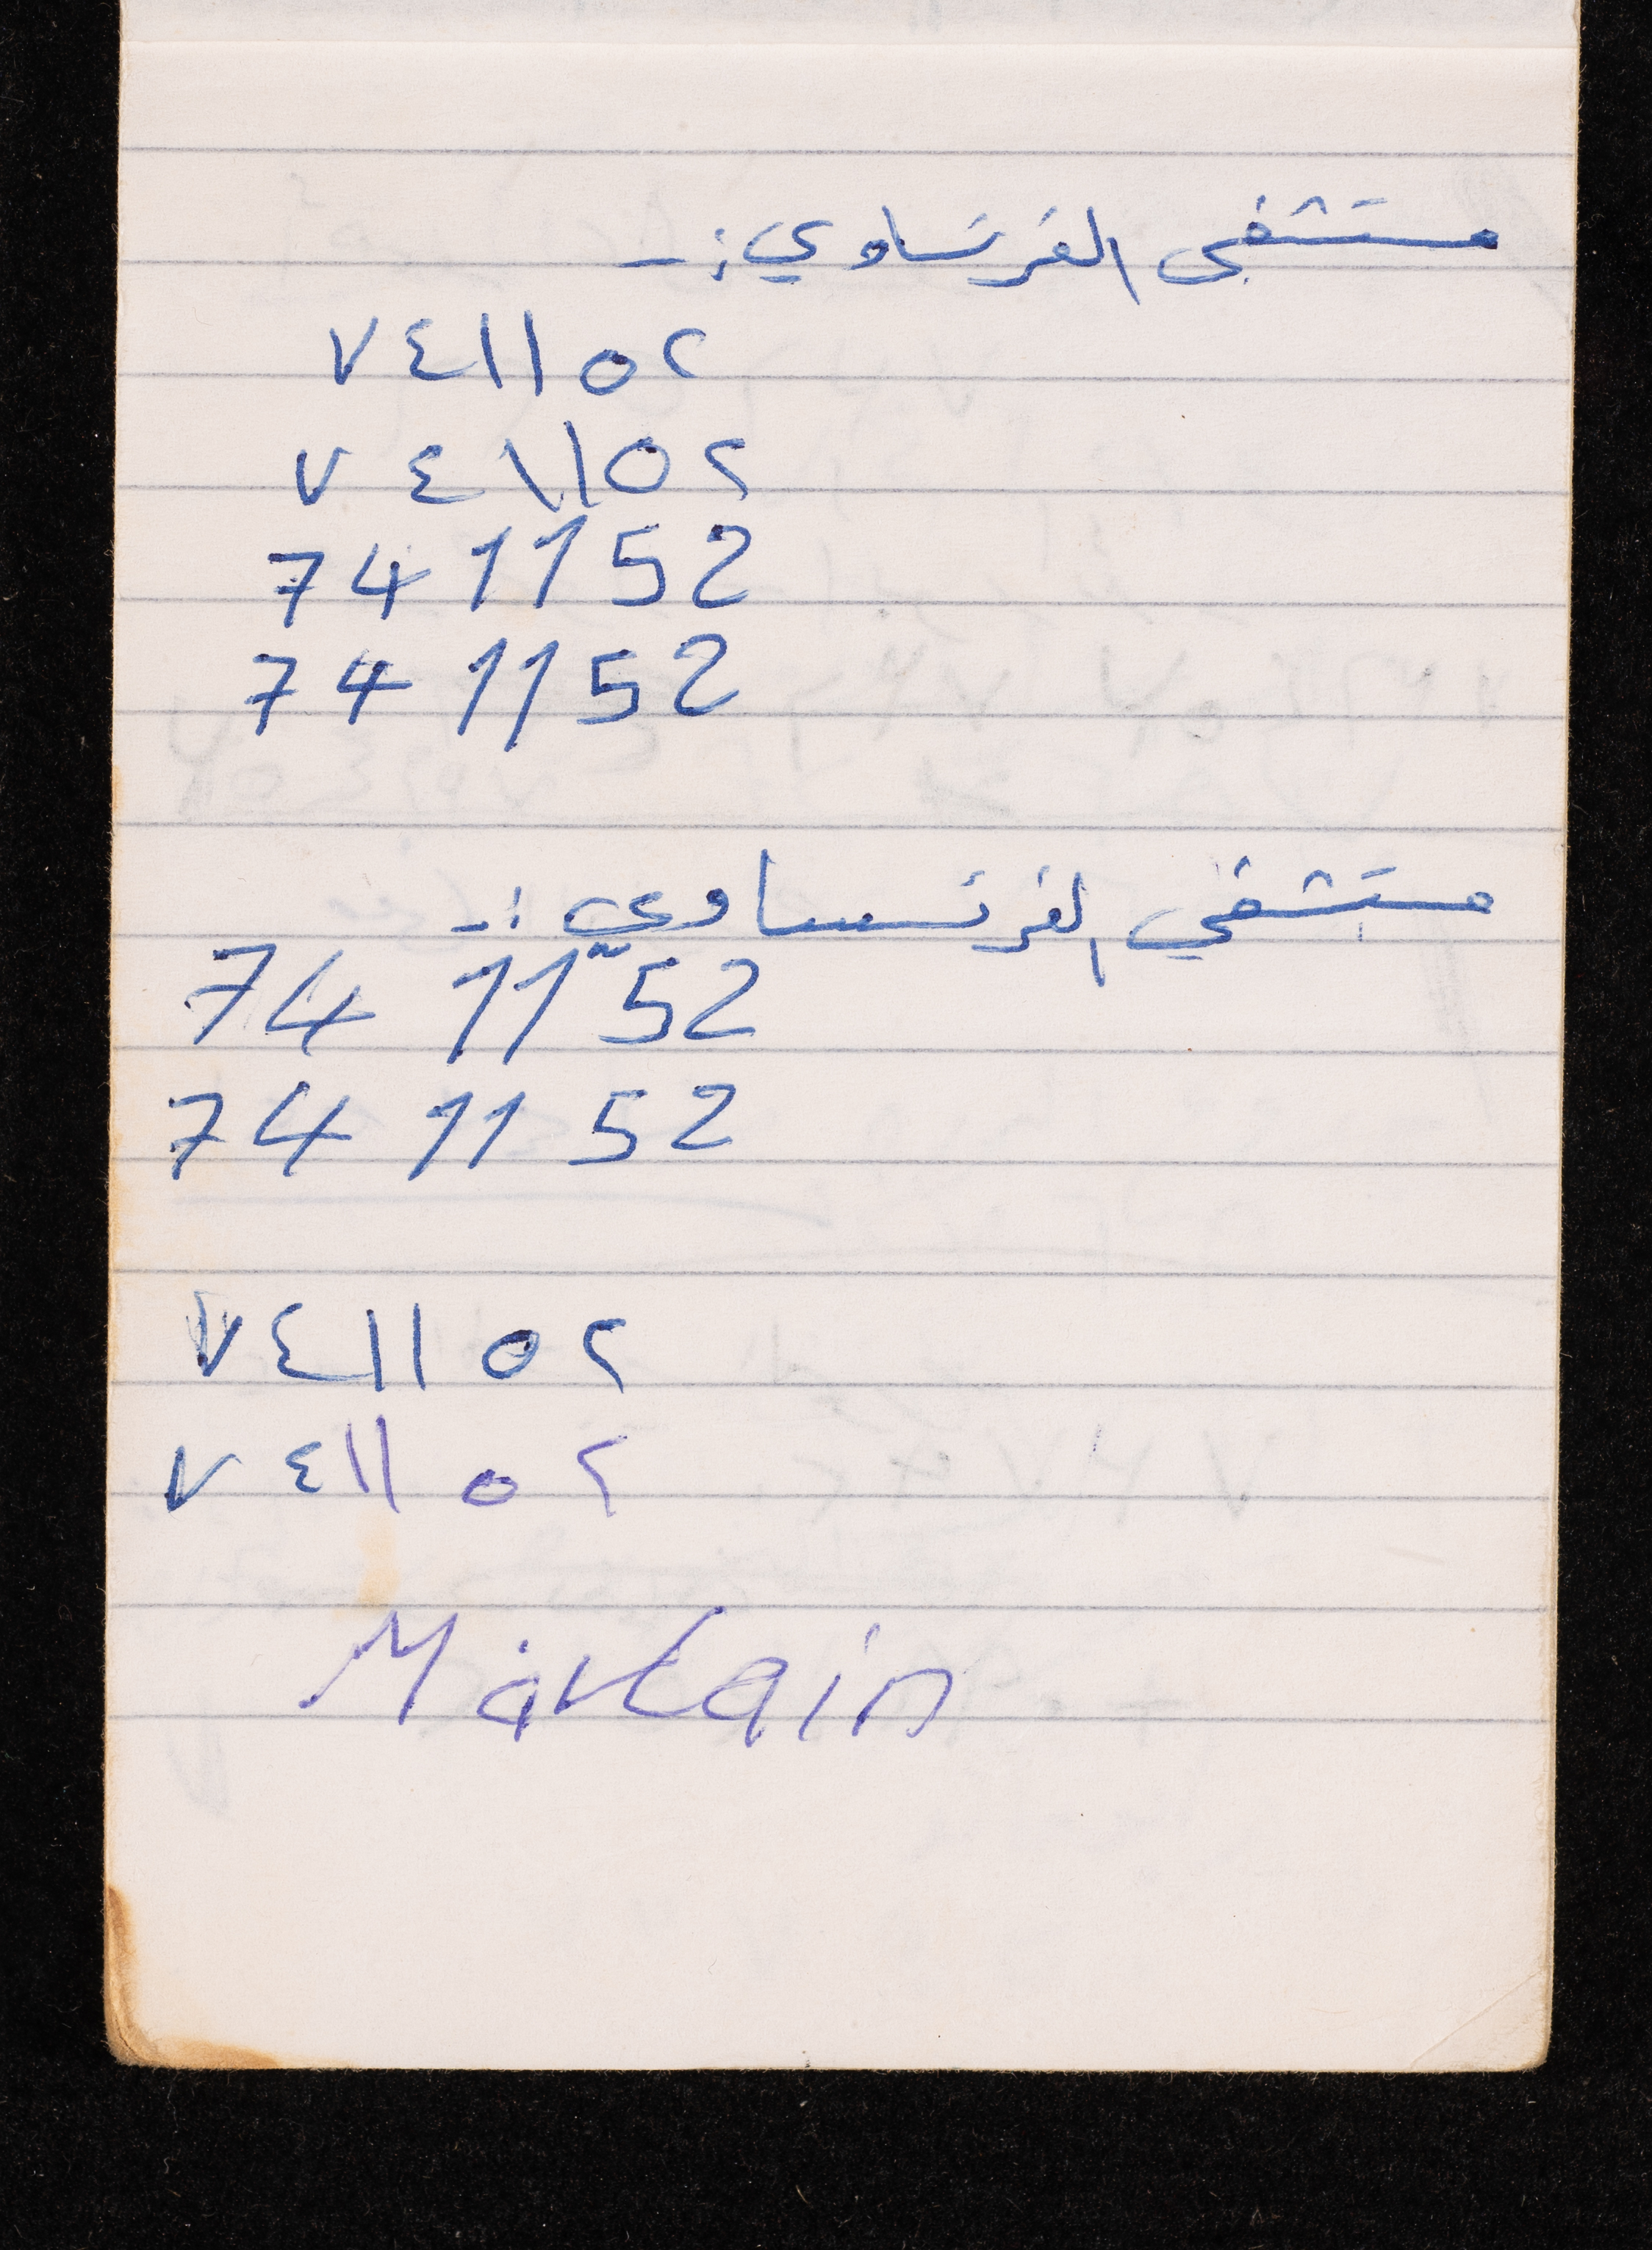 مستشفى الفرنساوي :-
٧٤١١٥٢
٧٤١١٥٢
74 11 52
74 11 52
مستشفي الفرنساوي :-
74 11 52
74 11 52
٧٤١١٥٢
٧٤١١٥٢